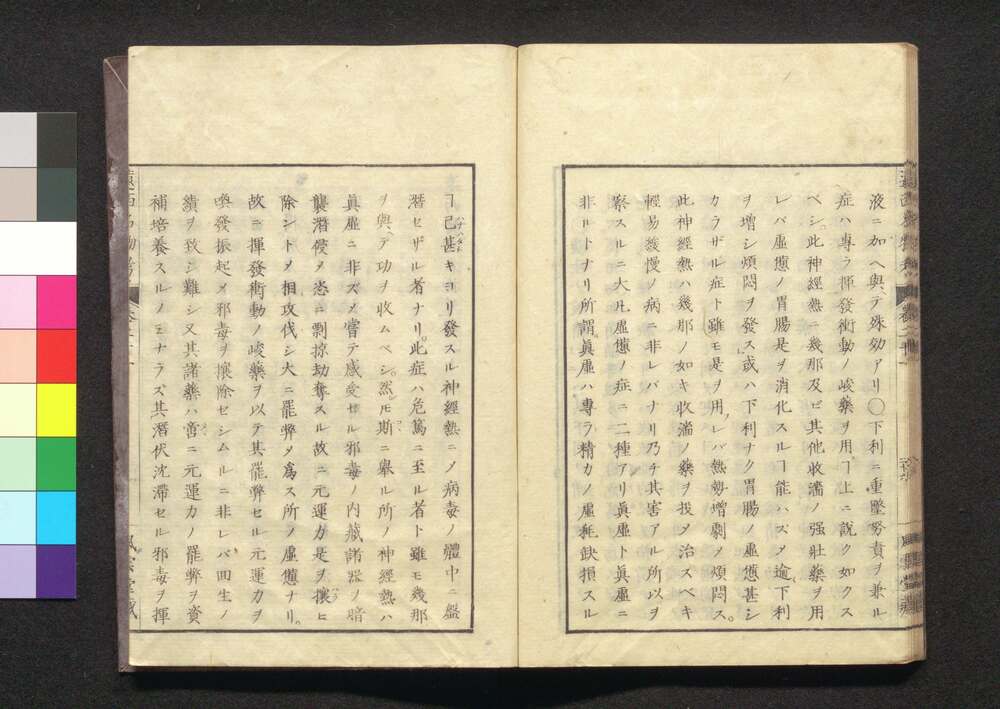 液ニ加ヘ與テ殊効アリ〇下利ニ重墜努責ヲ兼ル
症ハ專ラ揮發衝動ノ峻藥ヲ用ヿ上ニ説ク如クス
ベシ此神經熱ニ幾那及ビ其他收濇ノ强壯藥ヲ用
レバ虛憊ノ胃腸是ヲ消化スルヿ能ハズメ逾下利
ヲ增シ煩悶ヲ發ス或ハ下利ナク胃腸ノ虛憊甚シ
カラザル症ト雖モ是ヲ用レバ熱勢增劇メ煩悶ス
此神經熱ハ幾那ノ如キ收濇ノ藥ヲ投メ治スベキ
輕易緩慢ノ病ニ非レバナリ乃チ其害アル所以ヲ
察スルニ大凡虛憊ノ症ニ二種アリ眞虛ト眞虛ニ
非ルトナリ所謂眞虛ハ專ラ精力ノ虛耗缺損スル
ヿ已甚キヨリ發スル神經熱ニノ病毒ノ體中ニ
潛セザル者ナリ此症ハ危篤ニ至ル者ト雖モ幾那
ヲ與テ功ヲ收ムベシ然𪜈斯ニ擧ル所ノ神經熱ハ
眞虛ニ非ズメ嘗テ感受セル邪毒ノ内藏諸器ヲ暗
襲潛侵メ恣ニ剽掠劫奪スル故ニ元運力是ヲ攘ヒ
除ントメ相攻伐シ大ニ罷弊メ爲ス所ノ虛憊ナリ
故ニ揮發衝動ノ峻藥ヲ以テ其罷弊セル元運力ヲ
喚發振起メ邪毒ヲ攘除セシムルニ非レバ回生ノ
績ヲ致シ難シ又其諸藥ハ啻ニ元運力ノ罷弊ヲ資
補培養スルノミナラズ其潛伏沈滯セル邪毒ヲ揮